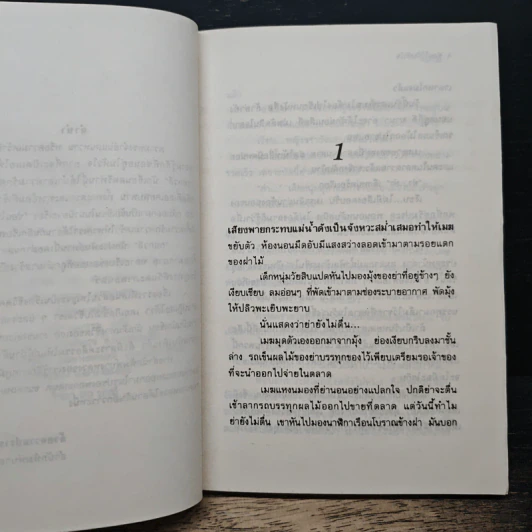 1
เสียงพายกระทบแม่น้ำดังเป็นจังหวะสม่ำเสมอทำให้เมฆ
ขยับตัว ห้องนอนมืดอับมีแสงสว่างลอดเข้ามาตามรอยแตก
ของฝาไม้
เด็กหนุ่มวัยสิบแปดหันไปมองมุ้งของย่าที่อยู่ข้างๆ ยัง
เงียบเชียบ ลมอ่อนๆ ที่พัดเข้ามาตามช่องระบายอากาศ พัดมุ้ง
ให้ปลิวพะเยิบพะยาบ
นั่นแสดงว่าย่ายังไม่ตื่น...
เมฆมุดตัวเองออกมาจากมุ้ง ย่องเงียบกริบลงมาชั้น
ล่าง รถเข็นผลไม้ของย่าบรรทุกของไว้เพียบเตรียมรอเจ้าของ
ที่จะนำออกไปจ่ายในตลาด
เมฆแหงนมองที่ย่านอนอย่างแปลกใจ ปกติย่าจะตื่น
เช้าลากรถบรรทุกผลไม้ออกไปขายที่ตลาด แต่วันนี้ทำไม
ย่ายังไม่ตื่น เขาหันไปมองนาฬิกาเรือนโบราณข้างฝา มันบอก